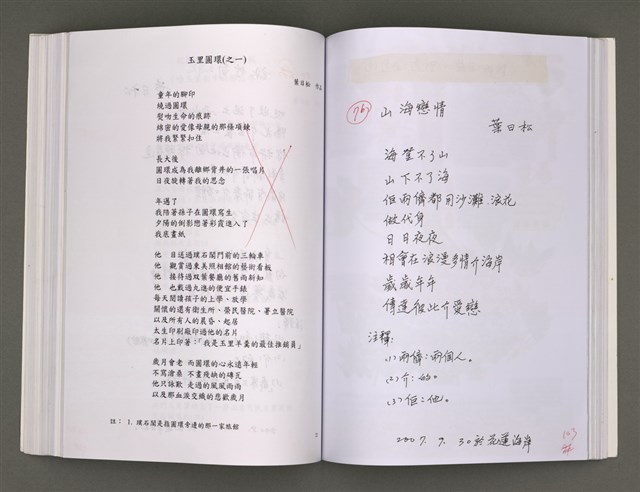 玉里圓環(之一)
葉日松 作品
童年的腳印
繞過圓環
熨吻生命的痕跡
綿密的愛像母親的那條項鍊
將我緊緊扣住
長大後
圓環成為我離鄉背井的一張唱片
日夜旋轉著我的思念
年邁了
我陪著孫子在圓環寫生
夕陽的倒影戀著彩霞進入了
我底畫紙
他 目送過璞石閣門前的三輪車
他 觀賞過東美照相館的藝術看板
他 接待過双葉餐廳的舊雨新知
他 也戴過光進的便宜手錶
每天閱讀孩子的上學、放學
關懷的還有衛生所、榮民醫院、署立醫院
以及所有人的晨昏、起居
太生印刷廠印過他的名片
名片上印著:「我是玉里羊羹的最佳推銷員」
歲月會老 而圓環的心永遠年輕
不寫滄桑 不畫殘缺的磚瓦
他只詠歎 走過的風風雨雨
以及那血淚交織的悲歡歲月
註: 1. 璞石閣是指圓環旁邊的那一家旅館
2
76)
山海戀情
葉日松
海望不了山
山下不了海
佢兩儕都用沙灘.浪花
做代身
日日夜夜
相會在浪漫多情介海岸
歲歲年年
傳達彼此介愛戀
注釋:
(1)兩儕:兩個人。
(2)介:的。
(3)佢:他。
2007. 9. 30於花蓮海岸
103